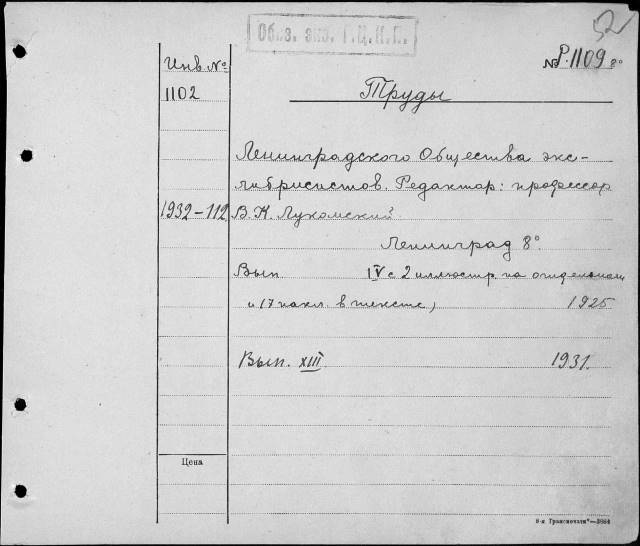 Обяз. экз. Г.Ц.К.П.
52
Инв. №
№ Р.1109 8°
1102
Труды
Ленинградского Общества экс-
либрисистов. Редактор: профессор
1932-112
В.К. Лукомский
Ленинград 8°.
Вып IV с 2 иллюстр. на отдельном
и 17 накл. в тексте, 1925
Вып. XIII 1931.
Цена
8-я Транспечати"—3864